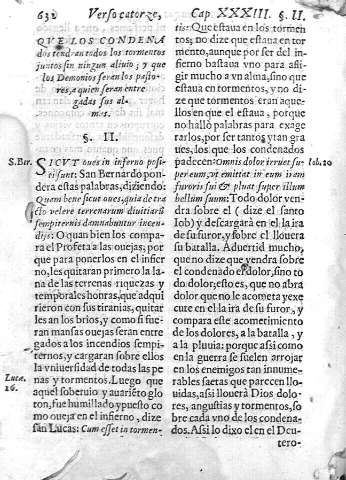 632 Verso catorze, Cap. XXXIII. §. II.
QUE LOS CONDENA
dos tendran todos los tormentos
juntos sin ningun aliuio; y que
los Demonios seran los pasto-
res, a quien seran entre
gadas sus al-
mas.
§. II.
S. Ber.
SICVT oues in inferno posi-
ti sunt: San Bernardo pon-
dera estas palabras, diziendo:
Quam bene sicut oues, quia detra
cto vellere terrenarum diuitiarū
sempiternis damnabuntur incen-
dijs: O quan bien los compa-
ra el Profeta a las ouejas, por
que para ponerlos en el infier
no, les quitaran primero la la
na de las terrenas riquezas y
temporales honras, que adqui
rieron con sus tiranias, quitar
les an los brios, y como si fue
ran mansas ouejas seran entre
gados a los incendios sempi-
ternos, y cargaran sobre ellos
la vniuersidad de todas las pe
nas y tormentos. Luego que
aquel soberuio y auariēto glo
ton, fue humillado y puesto co
mo oueja en el infierno, dize
san Lucas: Cum esset in tormen-
Lucæ.
16.
tis: Que estaua en los tormen
tos; no dize que estaua en tor
mento, aunque por ser del in
fierno bastaua vno para asi-
gir mucho a vn alma, sino que
estaua en tormentos, y no di
ze que tormentos eran aque-
llos en que el estaua, porque
no hallò palabras para exage
rarlos, por ser tantos y tan gra
ues, los que los condenados
padecen: Omnis dolor irruet su-
per eum, vt emittat in eum iram
furoris sui & pluat super illum
bellum suum: Todo dolor ven
dra sobre el (dize el santo
Iob) y descargarà en el la ira
de su furor, y sobre el llouerà
su batalla. Aduertid mucho,
que no dize que vendra sobre
el condenado el dolor, sino to
do dolor; esto es, que no abra
dolor que no le acometa y exe
cute en el la ira de su furor, y
compara este acometimiento
de los dolores, a la batalla, y
a la pluuia: porque assi como
en la guerra se suelen arrojar
en los enemigos tan innume-
rables saetas que parecen llo-
uidas, assi llouerà Dios dolo-
res, angustias y tormentos, so
bre cada vno de los condena-
dos. Assi lo dixo el en el Deu-
tero-
Iob. 20